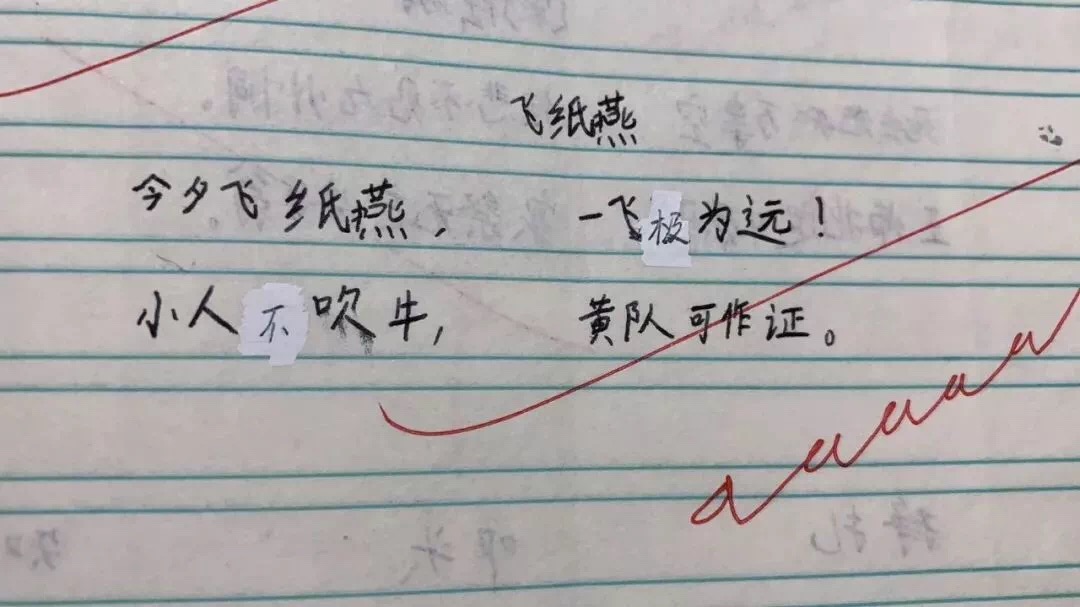 飞纸燕
今夕飞纸燕， 一飞极为远！
小人不吹牛， 黄队可作证。